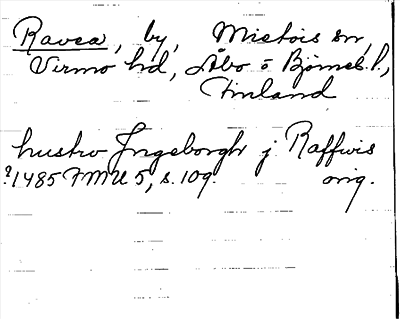 Ravea, by, Mietois sn,
Virmo hd, Åbo o Björneb. l.,
Finland
hustrv Jngeborgh j Raffwis
?1485 FMU 5, s. 109. orig.